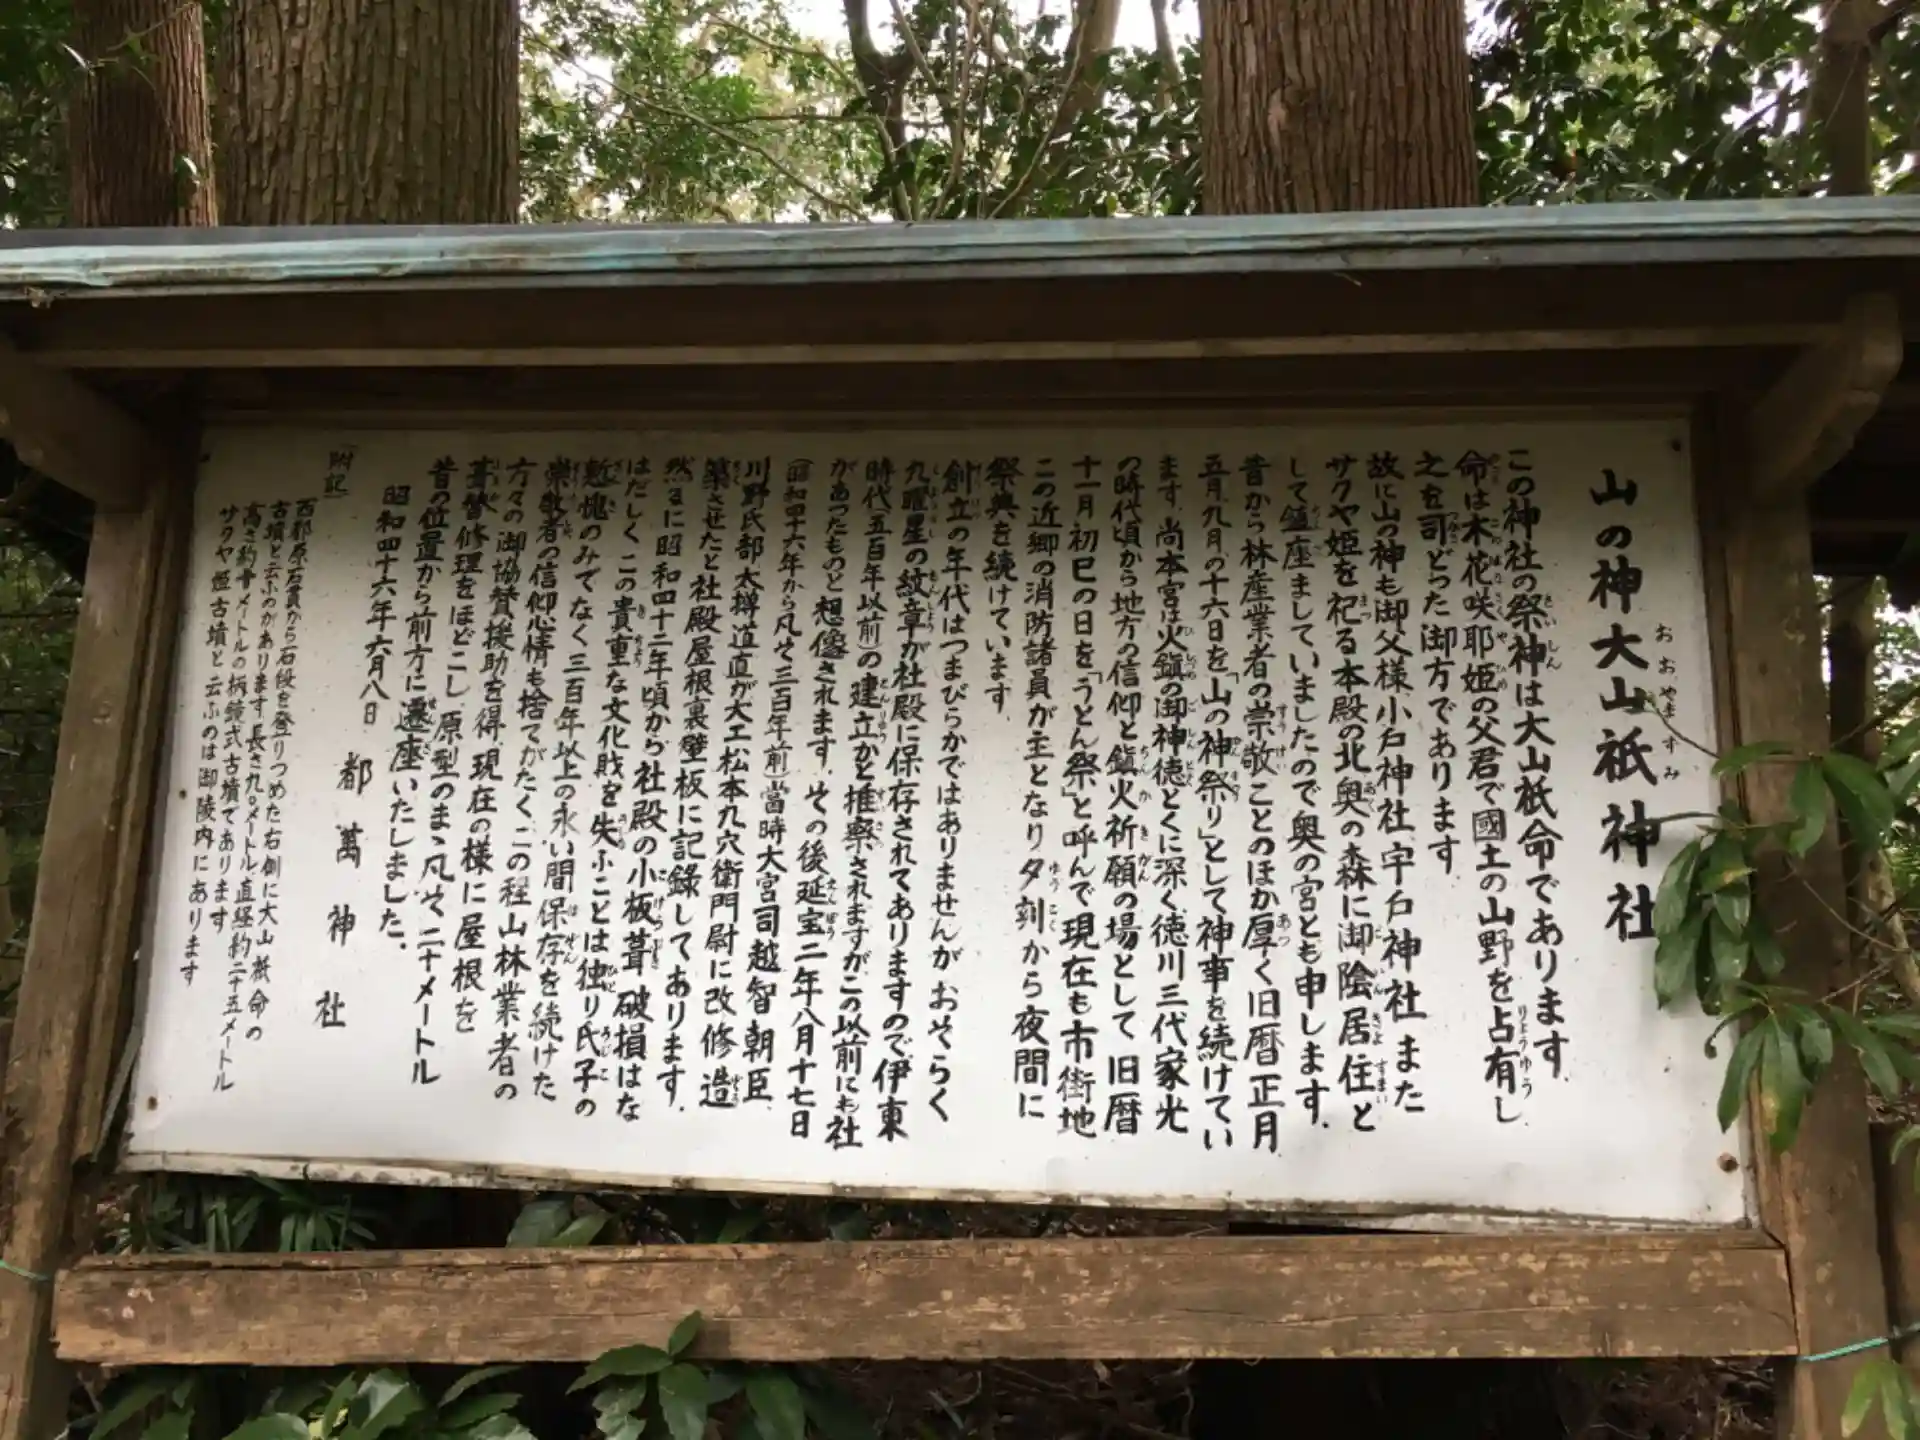 山の神大山祇神社
この神社の祭神は大山祇命であります.
命は木花咲耶姫の父君で國土の山野を占有し
之を司どった御方であります
故に山の神も御父様小戸神社宇戸神社また
サクヤ姫を祀る本殿の北奥の森に御陰居住と
して鎮座ましていましたので奥の宮とも申します.
昔から林産業者の崇敬ことのほか厚く旧暦正月
五月、九月、の十六日を「山の神祭り」として神事を続けてい
ます. 尚本宮は火鎮の御神徳とくに深く徳川三代家光
の時代頃から地方の信仰と鎮火祈願の場として旧暦
十一月初巳の日を「うどん祭」と呼んで現在も市街地
この近郷の消防諸員が主となり夕刻から夜間に
祭典を続けています.
創立の年代はつまびらかではありませんがおそらく
九曜星の紋章が社殿に保存されてありますので伊東
時代五百年以前)の建立かと推察されますがこの以前にも社
があったものと想像されます. その後延宝二年八月十七日
(昭和四十六年から凡そ三百年前)當時大宮司越智朝臣
川野氏部太樽道直が大工松本九穴衛門尉に改修造
築させたと社殿屋根裏壁板に記録してあります.
然るに昭和四十二年頃から社殿の小板葺破損はな
はだしくこの貴重な文化財を失ふことは独り氏子の
慙愧のみでなく三百年以上の永い間保存を続けた
崇敬者の信仰心情も捨てがたくこの程山林業者の
方々の御協賛援助を得現在の様に屋根を
葺替修理をほどこし原型のまゝ凡そ二十メートル
昔の位置から前方に遷座いたしました.
昭和四十六年六月八日
都萬神社
「附記」
西都原石貫から石段を登りつめた右側に大山祇命の
古墳と云ふのがあります長さ九〇メートル直経約二十五メートル
高さ約メートルの柄鏡式古墳であります
サクヤ姫古墳と云ふのは御陵内にあります